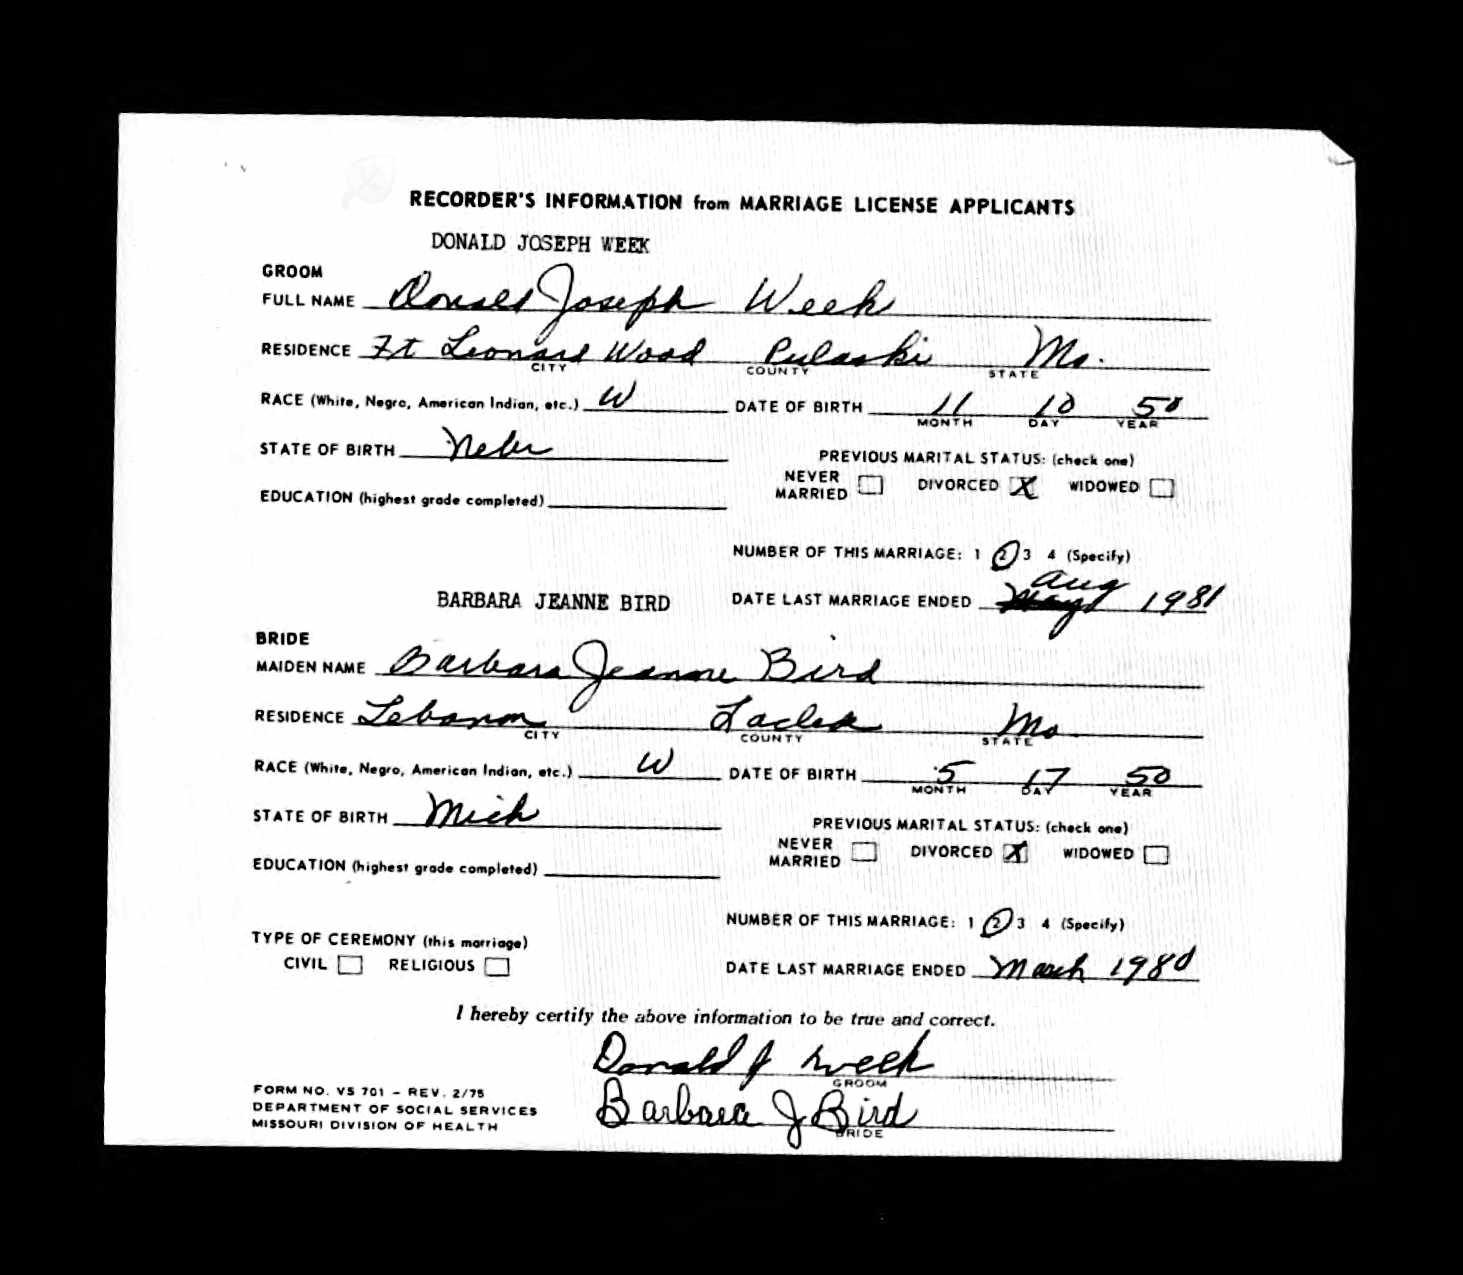 RECORDER'S INFORMATION from MARRIAGE LICENSE APPLICANTS
DONALD JOSEPH WEEK
GROOM
FULL NAME Donald Joseph Week
RESIDENCE Ft Leonard Wood Pulaski Mo.
CITY COUNTY STATE
RACE (White, Negro, American Indian, etc.) W DATE OF BIRTH 11 10 50
MONTH DAY YEAR
STATE OF BIRTH Nebr PREVIOUS MARITAL STATUS: (check one)
NEVER MARRIED DIVORCED X WIDOWED
EDUCATION (highest grade completed)
NUMBER OF THIS MARRIAGE: 1 2 3 4 (Specify)
Aug
BARBARA JEANNE BIRD DATE LAST MARRIAGE ENDED May 1981
BRIDE
MAIDEN NAME Barbara Jeanne Bird
RESIDENCE Lebanon Laclede Mo
CITY COUNTY STATE
RACE (White, Negro, American Indian, etc.) W DATE OF BIRTH 5 17 50
MONTH DAY YEAR
STATE OF BIRTH Mich PREVIOUS MARITAL STATUS: (check one)
NEVER MARRIED DIVORCED X WIDOWED
EDUCATION (highest grade completed)
NUMBER OF THIS MARRIAGE: 1 2 3 4 (Specify)
TYPE OF CEREMONY (this marriage)
CIVIL RELIGIOUS DATE LAST MARRIAGE ENDED March 1980
I hereby certify the above information to be true and correct.
Donald J Week
GROOM
Barbara J Bird
BRIDE
FORM NO. VS 701 - REV. 2/75
DEPARTMENT OF SOCIAL SERVICES
MISSOURI DIVISION OF HEALTH